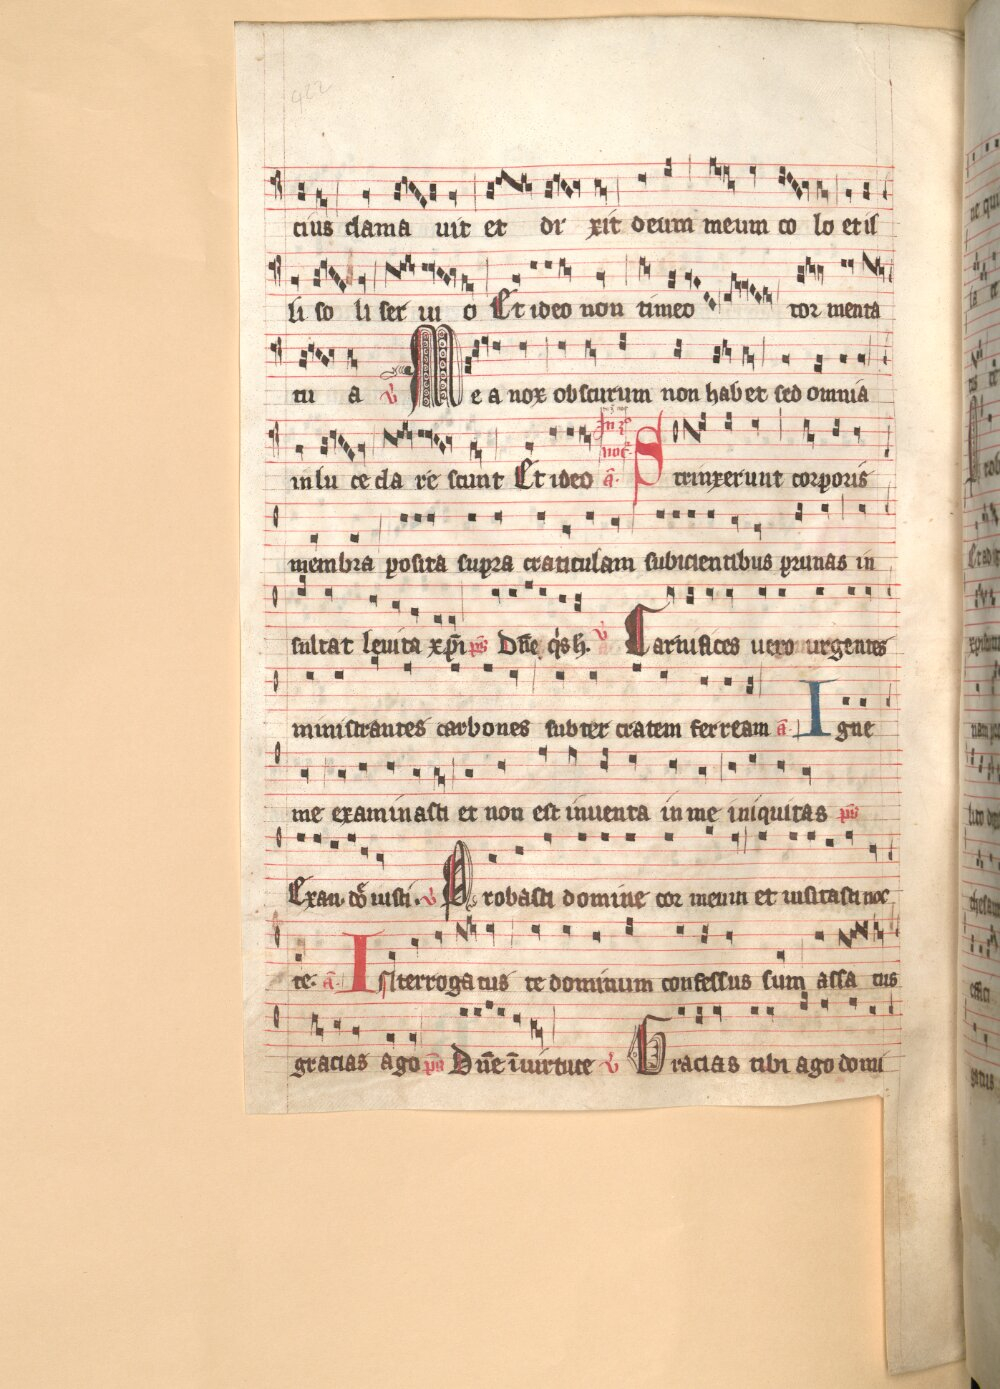 422
cius clama uit et di xit deum meum co lo et il
li so li ser ui o Et ideo non timeo tor menta
tu a v Mea nox obscurum non habet sed omnia
in lu ce cla re scunt Et ideo a. In 3o noct. Strinxerunt corporis
membra posita supra craticulam subicientibus prunas in
sultat leuita xp̄i ps Dn̄e q's h. v Carnifices uero urgentes
ministrantes carbones subter cratem ferream a. Igne
me examinasti et non est inuenta in me iniquitas ps
Exau. do iusti. v Probasti domine cor meum et uisitasti noc
te. a. Interrogatus te dominum confessus sum assa tus
gracias ago ps Dn̄e ī uirtute v Gracias tibi ago domi